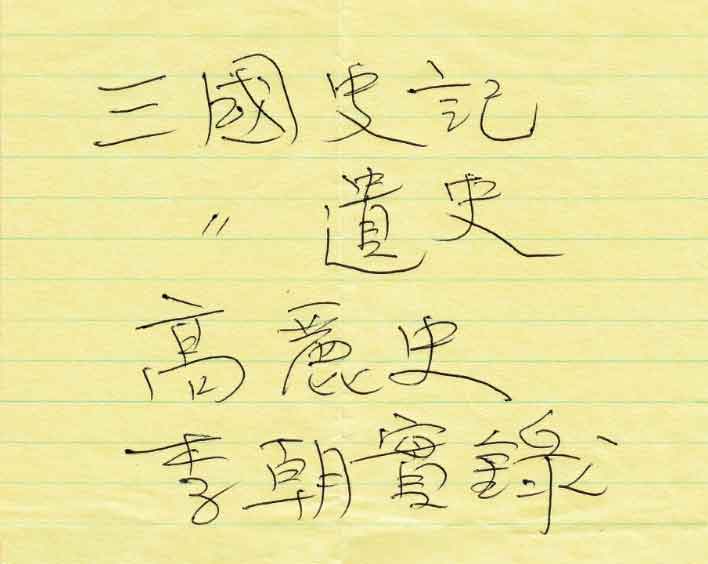 三國史記
〃 遺史
高麗史
李朝實錄